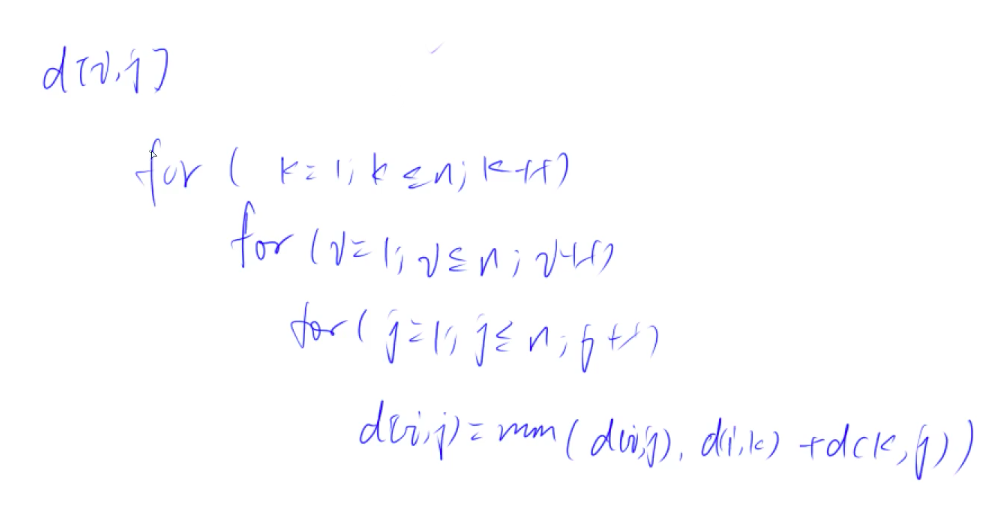 d[i,j]
for ( k=1; k≤n; k++)
for (i=1; i≤n; i++)
for ( j=1; j≤n; j++)
d(i,j)=min( d(i,j), d(i,k) +d(k,j))